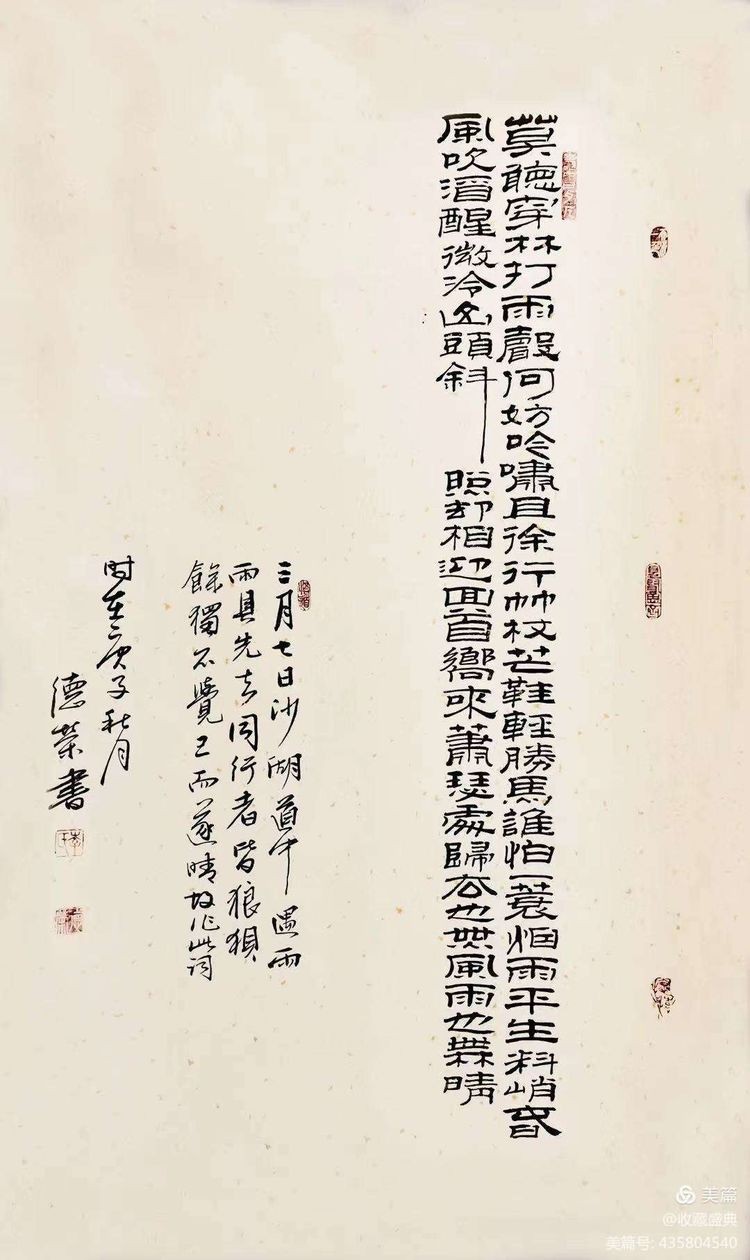 莫聽穿林打雨聲何妨吟嘯且徐行竹杖芒鞋輕勝馬誰怕一蓑烟雨平生料峭春
風吹酒醒微冷山頭斜照却相迎回首嚮來蕭瑟處歸去也無風雨也無晴
三月七日沙湖道中遇雨
雨具先去同行者皆狼狽
餘獨不覺已而遂晴故作此詞
时在庚子秋月
德榮書
美篇
@收藏盛典
美篇号: 435804540